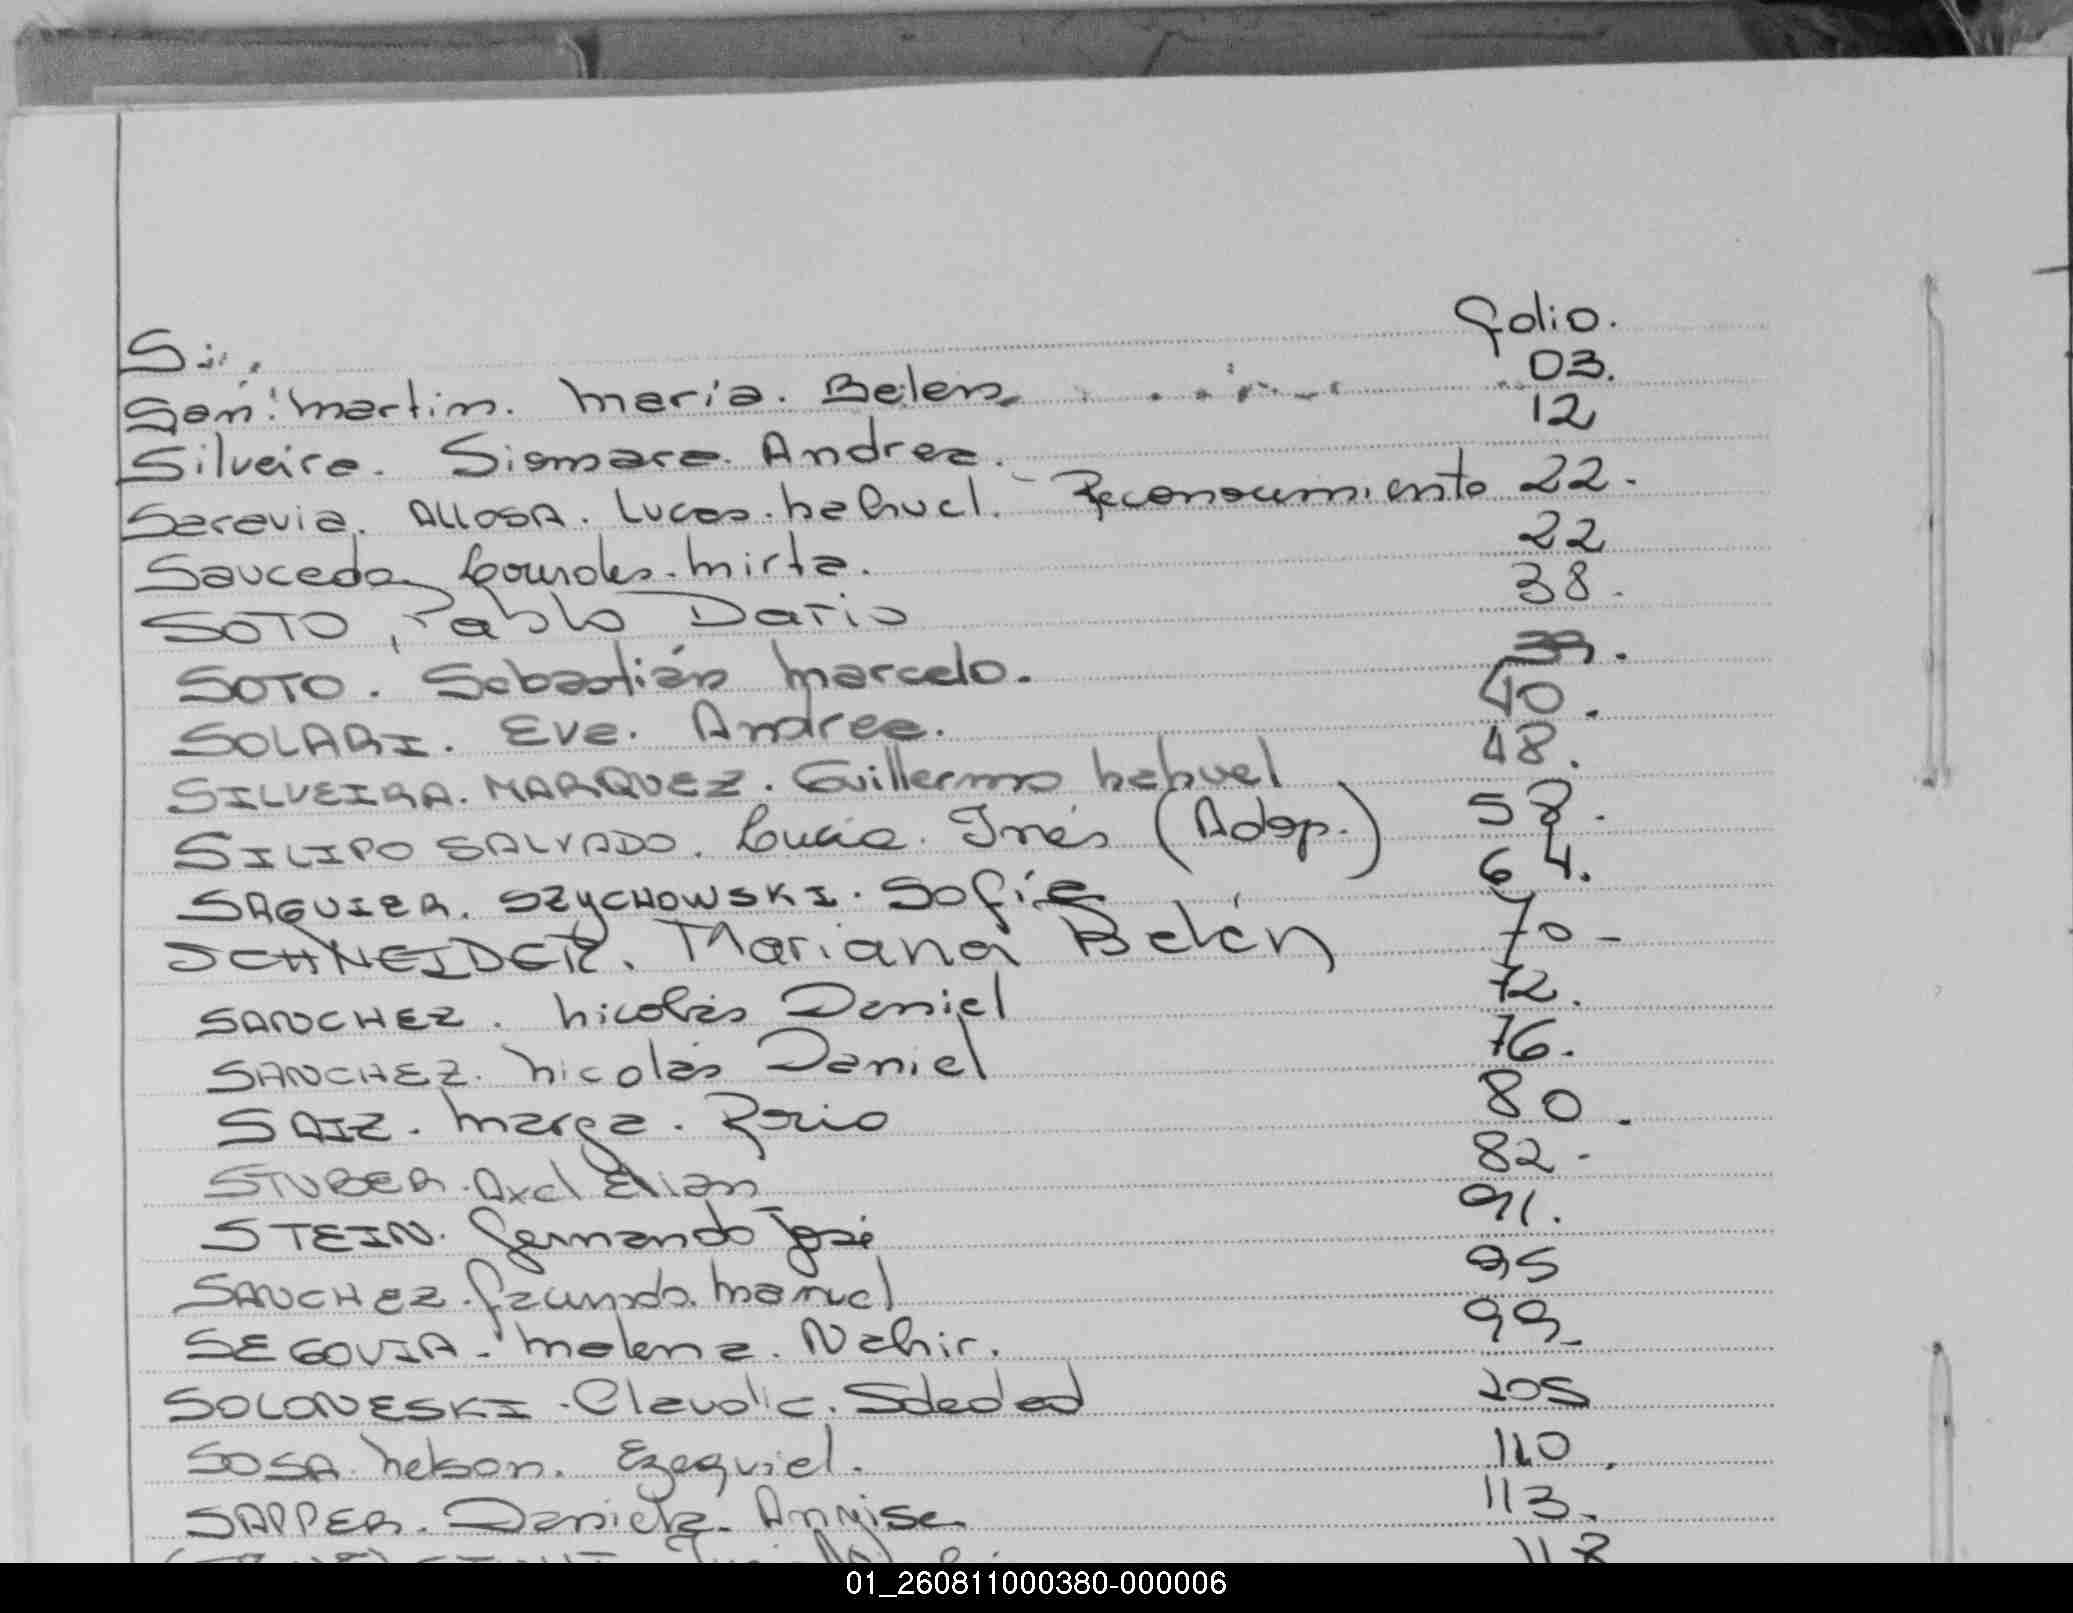 S... folio.
San Martin. Maria. Belen. 03.
Silveira. Siomara. Andrea. 12
Saravia. ALLOSA. Lucas. Nahuel. Reconocimiento 22.
Sauceda Lourdes. Mirta. 22
SOTO, Pablo Dario 38.
SOTO. Sebastián Marcelo. 39.
SOLARI. Eve. Andrea. 40.
SILVEIRA. MARQUEZ. Guillermo Nahuel 48.
SILIPO SALVADO. Lucia. Inés (Adop.) 58.
SAGUIER. SZYCHOWSKI. Sofia 64.
SCHNEIDER. Mariana Belén 70-
SANCHEZ. Nicolás Daniel 72.
SANCHEZ. Nicolás Daniel 76.
SAIZ. Marga. Rocio 80.
STUBER. Axel Elian 82-
STEIN. Fernando José 91.
SANCHEZ. Facundo. Manuel 95
SEGOVIA. Malena. Nahir. 99.
SOLONESKI. Claudia. Soledad 105
SOSA Nelson. Ezequiel. 110.
SAPPER. Daniela. 113.
118
01_260811000380-000006